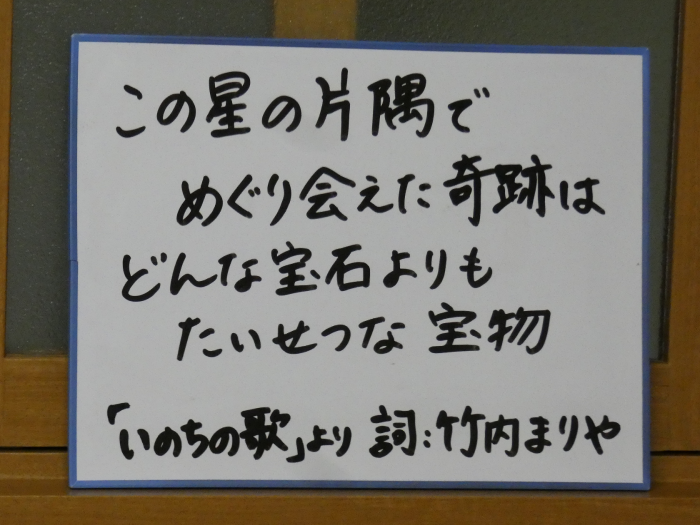 この星の片隅で
めぐり会えた奇跡は
どんな宝石よりも
たいせつな宝物
「いのちの歌」より 詞:竹内まりや